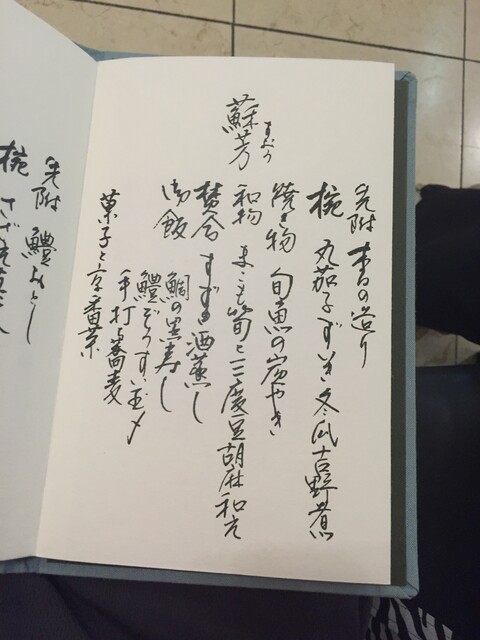 蘇芳
すおう
先附 本日の造り
椀 丸茄子ずいき冬瓜吉野煮
焼き物 旬魚の やき
和物 まこも筍と三度豆胡麻和え
焚合 すずき酒蒸し
御飯 鯛の黒寿し
鱧ぞうすい玉〆
手打ち蕎麦
菓子と京番茶
先附 鱧おとし
椀